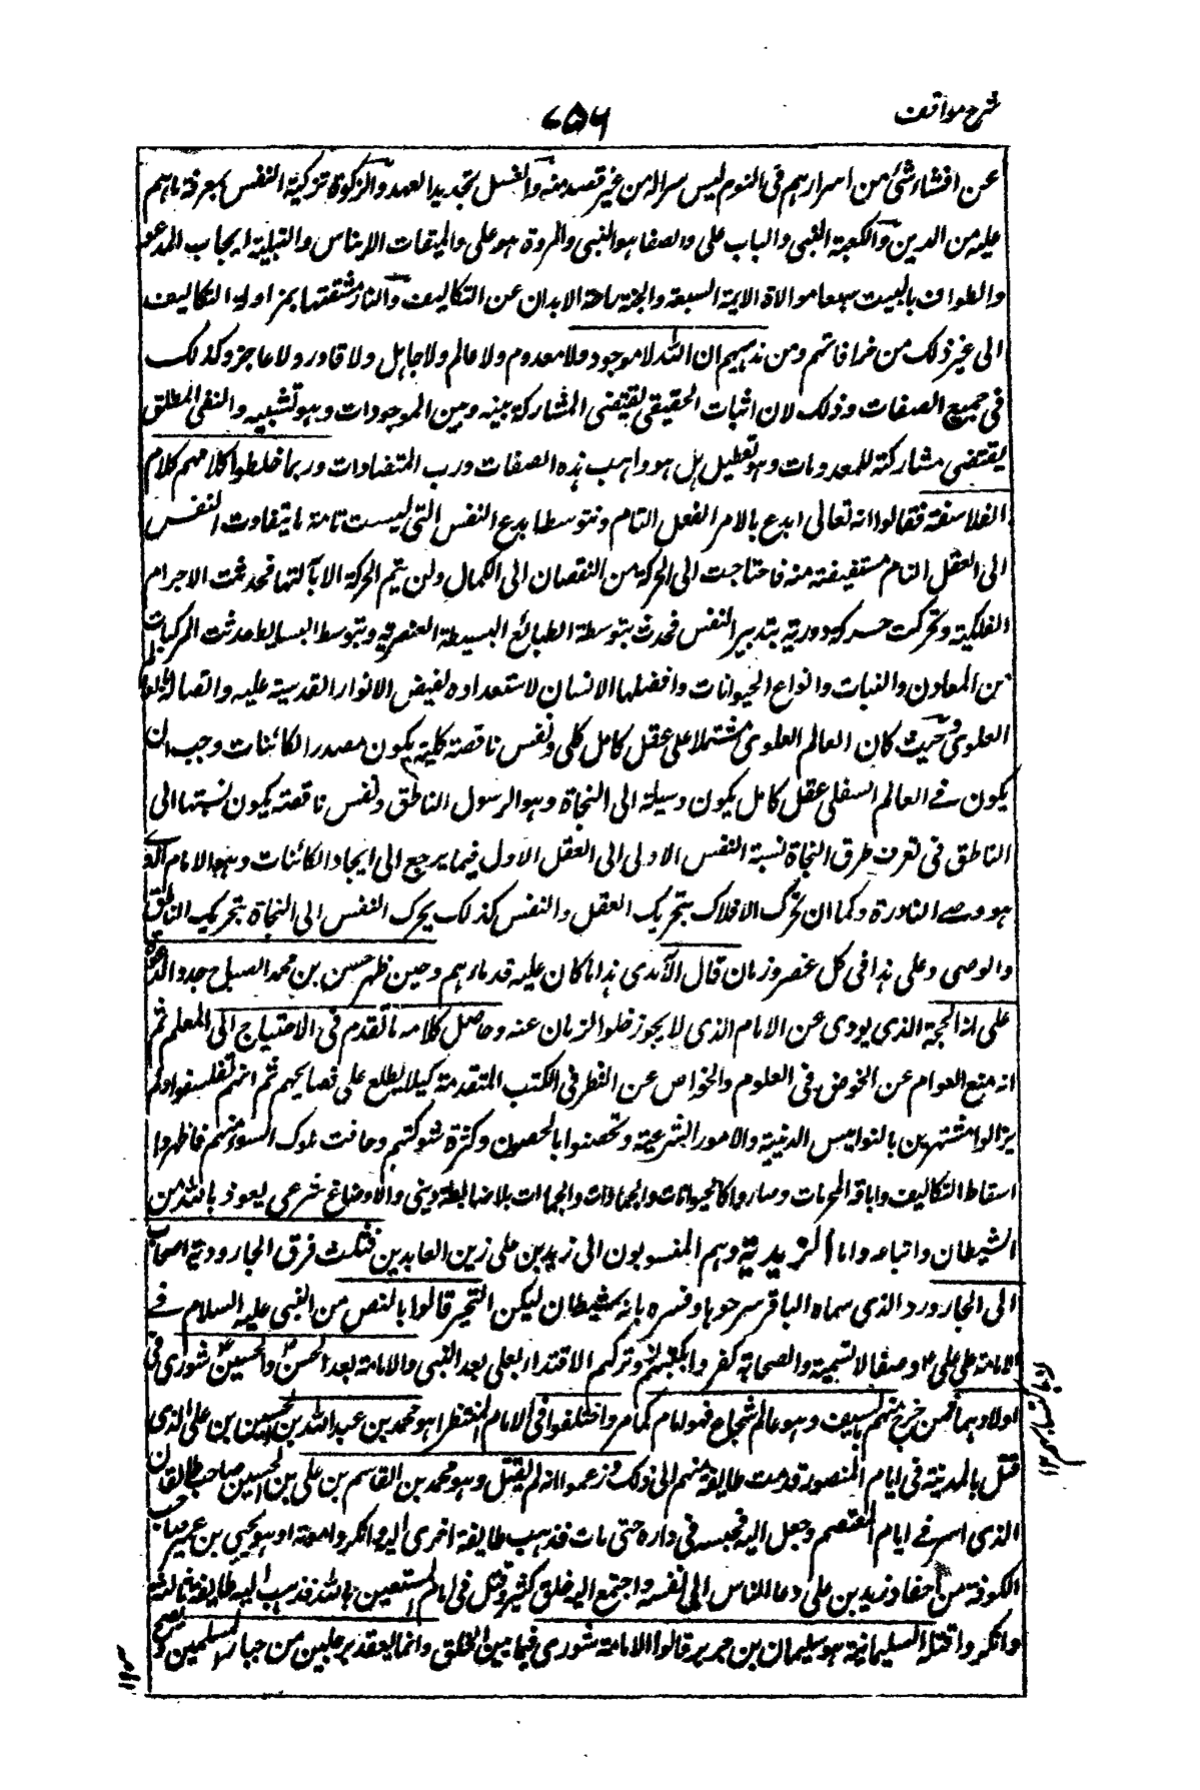 شرح مواقف
٧٥٦
عن افشاء شئ من اسرارهم فى النوم ليس سراله من غير قصد منه والغسل تجديد العهد والزكوة تزكية النفس بمعرفة ماهم
عليه من الدين والكعبة النبى والباب على والصفا هو النبى والمروة هو على والميقات الايناس والتلبية ايجاب المدعو
والطواف بالبيت سبعا موالاة الايمة السبعة والجنة راحة الابدان عن التكاليف والنار مشقتها بمزاولة التكاليف
الى غير ذلك من خرافاتهم ومن مذهبهم ان الله لا موجود ولا معدوم ولا عالم ولا جاهل ولا قادر ولا عاجز وكذلك
فى جميع الصفات وذلك لان اثبات الحقيقى يقتضى المشاركة بينه وبين الموجودات وهو تشبيه والنفى المطلق
يقتضى مشاركته للمعدومات وهو تعطيل بل هو واهب هذه الصفات ورب المتضادات وربما خلطوا كلامهم كلام
الفلاسفة فقالوا انه تعالى ابدع بالامر الفعل التام وبتوسطه ابدع النفس التى ليست تامة فاشتاقت النفس
الى العقل التام مستفيضة منه فاحتاجت الى الحركة من النقصان الى الكمال ولن يتم الحركة الا بآلتها فحدثت الاجرام
الفلكية وتحركت حركة دورية بتدبير النفس فحدث بتوسطة الطبائع البسيطة العنصرية وبتوسط البسايط حدثت المركبات
من المعادن والنبات وانواع الحيوانات وافضلها الانسان لاستعداده لفيض الانوار القدسية عليه واتصاله بالعالم
العلوى وحيث كان العالم العلوى مشتملا على عقل كامل كلى ونفس ناقصة كلية يكون مصدر الكائنات وجب ان
يكون فى العالم السفلى عقل كامل يكون وسيلة الى النجاة وهو الرسول الناطق ونفس ناقصة يكون نسبتها الى
الناطق فى تعرف طرق النجاة نسبة النفس الاولى الى العقل الاول فيما يرجع الى ايجاد الكائنات وهو الامام الذى
هو وصى الناطق وكما ان تحرك الافلاك بتحريك العقل والنفس كذلك يحرك النفس الى النجاة بتحريك الناطق
والوصى وعلى هذا فى كل عصر وزمان قال الآمدى هذا ما كان عليه قدماؤهم وحين ظهر حسن بن محمد الصباح جدد الدعوة
على انه الحجة الذى يودى عن الامام الذى لا يجوز خلو الزمان عنه وحاصل كلامه ما تقدم فى الاحتياج الى المعلم ثم
انه منع العوام عن الخوض فى العلوم والخواص عن النظر فى الكتب المتقدمة كيلا يطلع على فضايحهم ثم انهم تفلسفوا ولم
يزالوا مشتهرين بالنواميس الدينية والامور الشرعية وتحصنوا بالحصون وكثرة شوكتهم وخافت ملوك السوء منهم فاظهروا
اسقاط التكاليف واباحة المحرمات وصاروا كالحيوانات والجمادات بلا ضابطة دينى ولا وضاع شرعى يعوذ بالله من
الشيطان واتباعه واما الزيدية وهم المنسوبون الى زيد بن على زين العابدين فثلث فرق الجارودية اصحاب
ابى الجارود الذى سماه الباقر سرحوبا وفسره بانه شيطان يسكن البحر قالوا بالنص من النبى عليه السلام فى
الامامة على على وصفا لا تسمية والصحابة كفروا بمخالفته وتركهم الاقتداء بعلى بعد النبى والامامة بعد الحسن والحسين شورى فى
اولادهما فمن خرج منهم بالسيف وهو عالم شجاع فهو امام كما مر واختلفوا فى الامام المنتظر اهو محمد بن عبد الله بن الحسين بن على الذى
قتل بالمدينة فى ايام المنصور فذهبت طايفة منهم الى ذلك وزعموا انه لم يقتل وهو محمد بن القاسم بن على بن الحسين صاحب طالقان
الذى اسر فى ايام المعتصم وحمل اليه فحبسه فى داره حتى مات فذهب طايفة اخرى اليه وانكروا موته او هو يحيى بن عمير صاحب
الكوفة من احفاد زيد بن على دعا الناس الى نفسه واجتمع اليه خلق كثير وقتل فى ايام المستعين بالله فذهب اليه طايفة ثالثة
وانكروا قتله السليمانية هو سليمان بن جرير قالوا الامامة شورى فيما بين الخلق وانما يعقد برجلين من خيار المسلمين وتصح